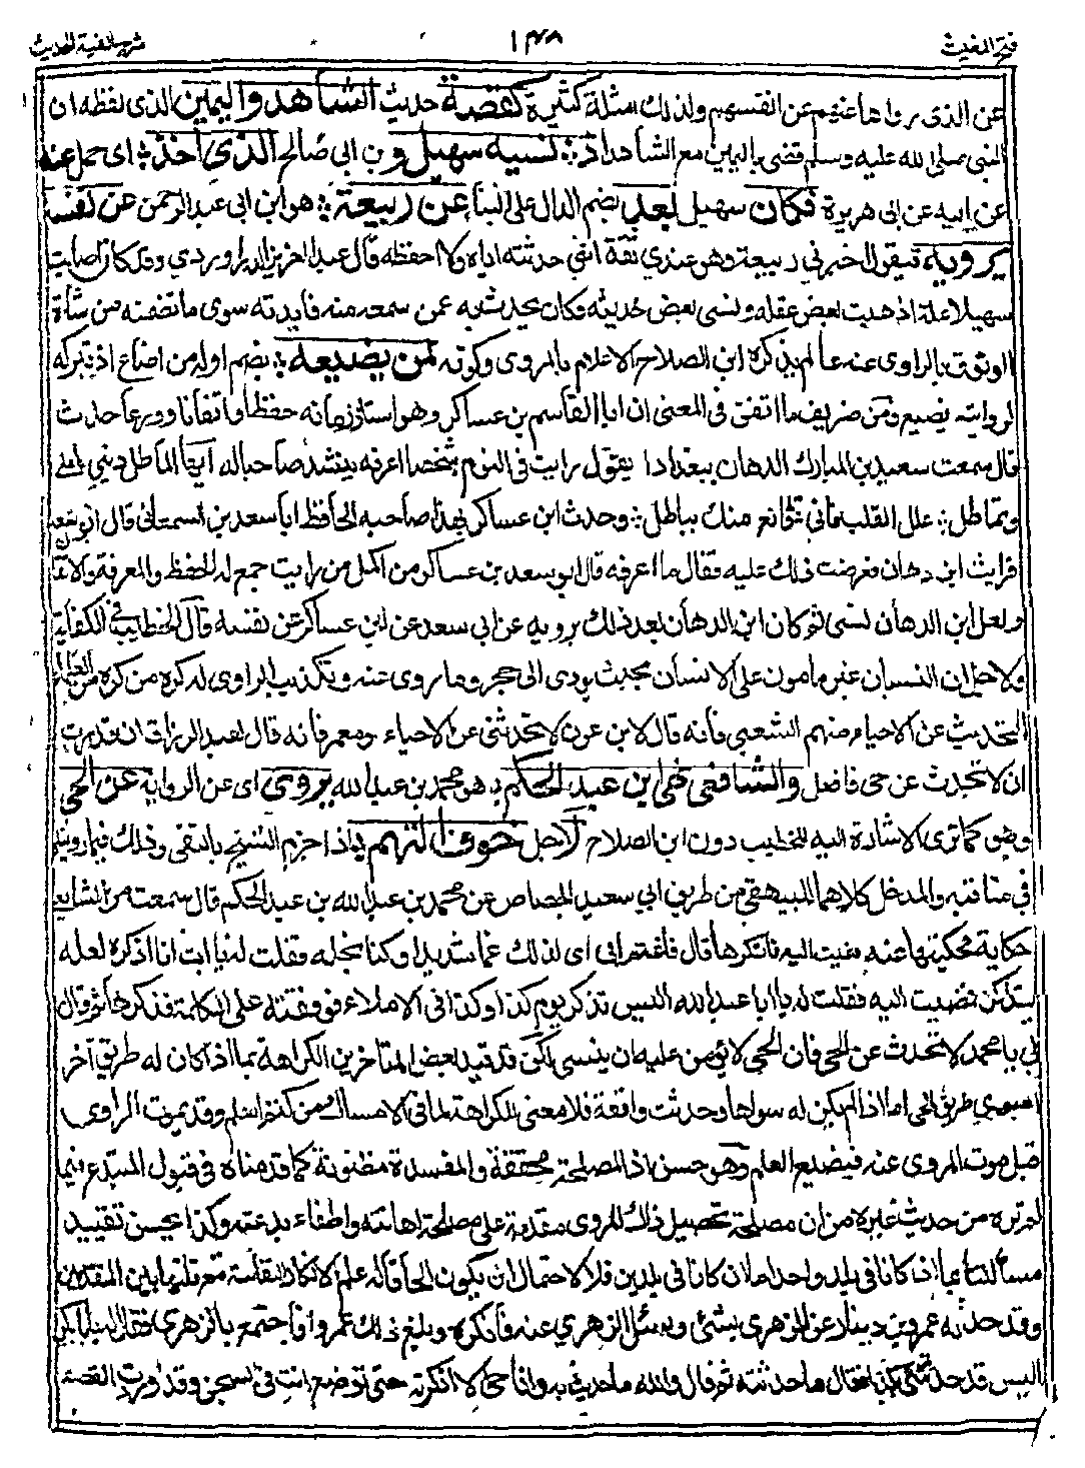 فتح المغيث ١٤٨ شرح الفية الحديث
عن الذى رواها عنهم عن انفسهم ولذلك امثلة كثيرة كقصة حديث الشاهد واليمين الذى لفظه ان
النبى صلى الله عليه وسلم قضى باليمين مع الشاهد اذ نسيه سهيل و بن ابى صالح الذى اخذ اى حمل عنه
عن ابيه عن ابى هريرة فكان سهيل بعد بضم الدال على البناء عن ربيعة هو ابن ابى عبد الرحمن عن نفسه
يرويه فيقول اخبرنى ربيعة وهو عندى ثقة اننى حدثته اياه ولا احفظه قال عبد العزيز الدراوردي وقد كان اصابت
سهيلا علة اذهبت بعض عقله ونسى بعض حديثه فكان يحدث به عمن سمعه منه فايدته سوى ما تضمنه من شأة
الوثوق بالراوى عنه مما لم يذكره ابن الصلاح الاعلام بالمروى وكونه لمن يضيعه بضم اوله من اضاع اذ بتركه
لروايته يضيع ومن ظريف ما اتفق فى المعنى ان ابا القاسم بن عساكر وهو استاذ زمانه حفظا واتقانا وورعا حدث
قال سمعت سعيد بن المبارك الدهان ببغداد يقول رايت فى النوم شخصا اعرفه ينشد صاحبا له ايها الماطل دينى املى
وتماطل علل القلب فانى قانع منك بباطل وحدث ابن عساكر بهذا صاحبه الحافظ ابا سعد بن السمعانى قال ابو سعد
فرايت ابن دهان فعرضت ذلك عليه فقال ما اعرفه قال ابو سعد بن عساكر من اكمل من رايت جمع له الحفظ والمعرفة والاتقان
ولعل ابن الدهان نسى ثم كان ابن الدهان بعد ذلك يرويه عن ابى سعد عن ابن عساكر عن نفسه قال الخطيب فى الكفاية
ولاجل ان النسيان غير مامون على الانسان بحيث يودى الى جحود ما روى عنه وتكذيب الراوى له كره من كره من العلماء
التحديث عن الاحياء منهم الشعبى فانه قال لابن عون لا تحدثنى عن الاحياء ومعمر فانه قال لعبد الرزاق ان قدرت
ان لا تحدث عن حى فافعل والشافعى نهى ابن عبد الحكم هو محمد بن عبد الله يروى اى عن الرواية عن الحى
وهو كما ترى الاشارة اليه للخطيب دون ابن الصلاح لاجل خوف التهم اذا جزم الشيخ بالنفى وذلك فيما رويناه
فى مناقبه والمدخل كلاهما للبيهقى من طريق ابى سعيد الجصاص عن محمد بن عبد الله بن عبد الحكم قال سمعت من الشافعى
حكاية فحكيتها عنه فنميت اليه فانكرها قال فاغتم ابى اى لذلك غما شديدا وكنا نجله فقلت له يا ابت انا اذكره لعله
يتذكر فمضيت اليه فقلت له يا ابا عبد الله اليس تذكر يوم كذا وكذا فى الاملاء فوقفته على الكلمة فذكرها ثم قال
لى يا محمد لا تحدث عن الحى فان الحى لا يؤمن عليه ان ينسى لكن قد قيد بعض المتاخرين الكراهة بما اذا كان له طريق آخر
سوى طريق الحى اما اذا لم يكن له سواها وحدثت واقعة فلا معنى للكراهة لما فى الامساك من كتم العلم وقد يموت الراوى
قبل موت المروى عنه فيضيع العلم وهو حسن اذ المصلحة محققة والمفسدة مظنونة كما قدمناه فى قبول المبتدع فيما
لم نره من حديث غيره من ان مصلحة تحصيل ذلك المروى مقدمة على مصلحة اهانته واطفاء بدعته وكذا يحسن تقييد
مسألتنا بما اذا كانا فى بلد واحد اما ان كانا فى بلدين فلا لاحتمال ان يكون الحامل له على الانكار النفاسة مع قلتها بين المتقدمين
وقد حدث عمرو بن دينار عن الزهرى بشئ وسئل الزهري عنه فانكره وبلغ ذلك عمروا فاجتمع بالزهرى فقال له يا ابا بكر
اليس قد حدثتنى بكذا فقال ما حدثته ثم قال والله ما حدثت به وانا حى الا انكرته حتى توضع انت فى السجن وقد اوردت القصة